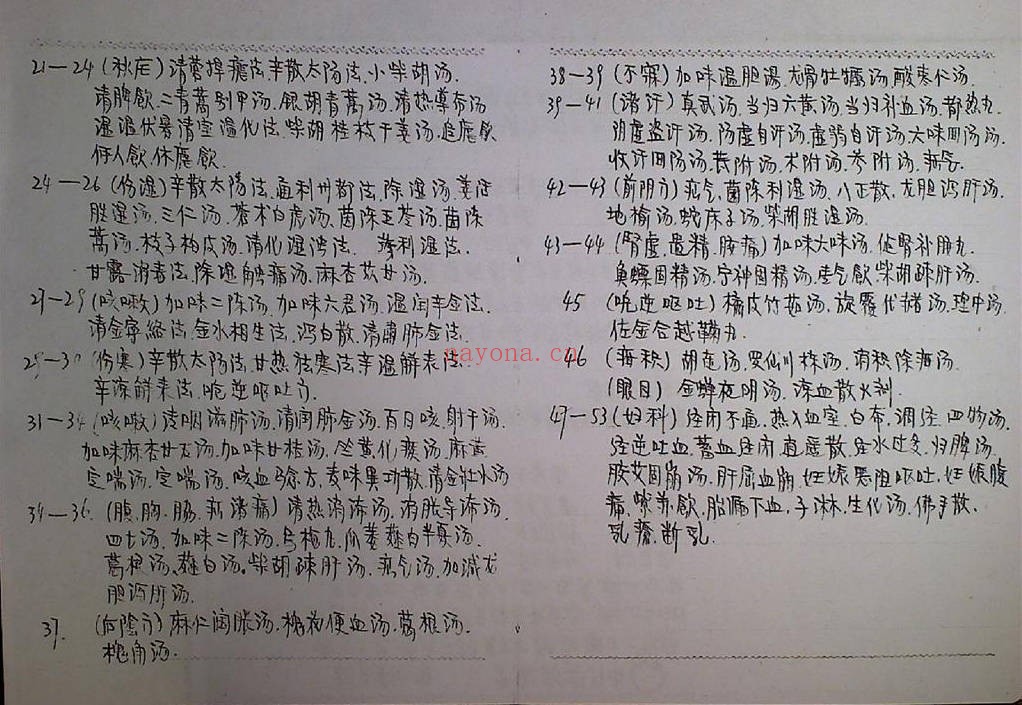 21—24 (秋疟) 清营捍疟法.辛散太阳法.小柴胡汤.
清脾飲.二青蒿别甲汤.银胡青蒿汤.清热导赤汤
湿温伏暑清宣温化法.柴胡桂枝干姜汤.追疟飲
何人飲.休疟飲.
24—26 (伤湿) 辛散太阳法.通利州都法.除湿汤.姜活
胜湿汤.三仁汤.苍术白虎汤.茵陈五苓汤.茵陈
蒿汤.枝子柏皮汤.清化湿浊法. 利湿法.
甘露消毒法.除湿蠲痛汤.麻杏苡甘汤.
27—29 (咳嗽) 加味二陈汤.加味六君汤.温润辛金法.
清金宁络法.金水相生法.泻白散.清肃肺金法.
(伤寒) 辛散太阳法.甘热祛寒法.辛温解表法.
辛凉解表法.呃逆呕吐方.
31—34 (咳嗽) 清咽滋肺汤.清润肺金汤.百日咳.射干汤.
加味麻杏甘石汤.加味甘桔汤.竺黄化痰汤.麻黄
定喘汤.定喘汤.咳血方.麦味異功散.清金壮水汤
34—36. (腹.胸.脇.痛) 清热消滞汤.消胀导滞汤.
四七汤.加味二陈汤.乌梅丸.瓜蒌薤白半夏汤.
葛根汤.薤白汤.柴胡疎肝汤.疝气汤.加减龙
胆泻肝汤.
37. (后陰方) 麻仁润肠汤.槐花便血汤.葛根汤.
槐角汤.
38—39 (不寐) 加味温胆湯.龙骨牡蠣汤.酸枣仁汤.
39—41 (诸汗) 真武汤.当归六黄汤.当归补血汤.都热丸.
阴虚盗汗汤.阳虚自汗汤.虚弱自汗汤.六味回阳汤.
收汗回阳汤.芪附汤.术附汤.参附汤.疝气.
42—43 (前阴方) 疝气.茵陈利湿汤.八正散.龙胆泻肝汤.
地榆汤.蛇床子汤.柴胡胜湿汤.
43—44 (腎虚.遗精.腰痛) 加味六味汤.健腎补肺丸.
魚螵固精汤.宁神固精汤.奎气飲.柴胡疎肝汤.
45 (呃逆呕吐) 橘皮竹茹汤.旋覆代赭汤.理中汤.
佐金合越鞠丸.
46 (海积) 胡连汤.罗仙川楝汤.消积除海汤.
(眼目) 金蝉夜明汤.凉血散火剂.
47—53 (妇科) 经闭不通.热入血室.白布.调经.四物汤.
经逆吐血.蓄血经闭.逍遥散.经水过多.归脾汤.
胶艾固崩汤.肝屈血崩.妊娠悪阻呕吐.妊娠腹
痛.紫苏飲.胎漏下血.子淋.生化汤.佛手散.
乳蕭.断乳.
nayona.cn